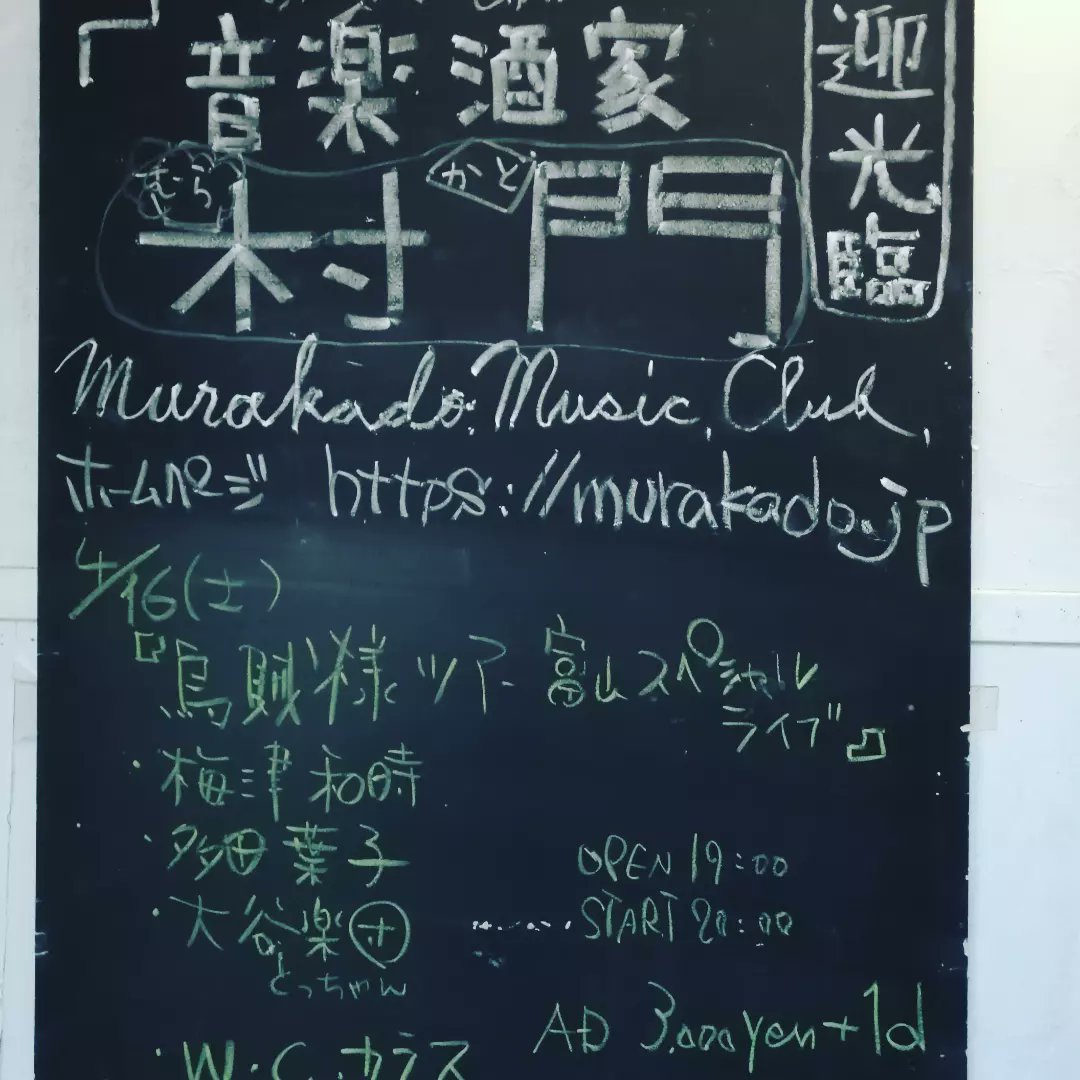 「音楽酒家
むら かど
村門
迎光臨
Murakado. Music. Club.
ホームページ https://murakado.jp
4/16(土)
『鳥賊様ツアー富山スペシャル
ライブ』
・梅津和時
・多田葉子
・大谷楽団
とっちゃん
・W.C.カラス
OPEN 19:00
START 20:00
AD 3.000yen+1d